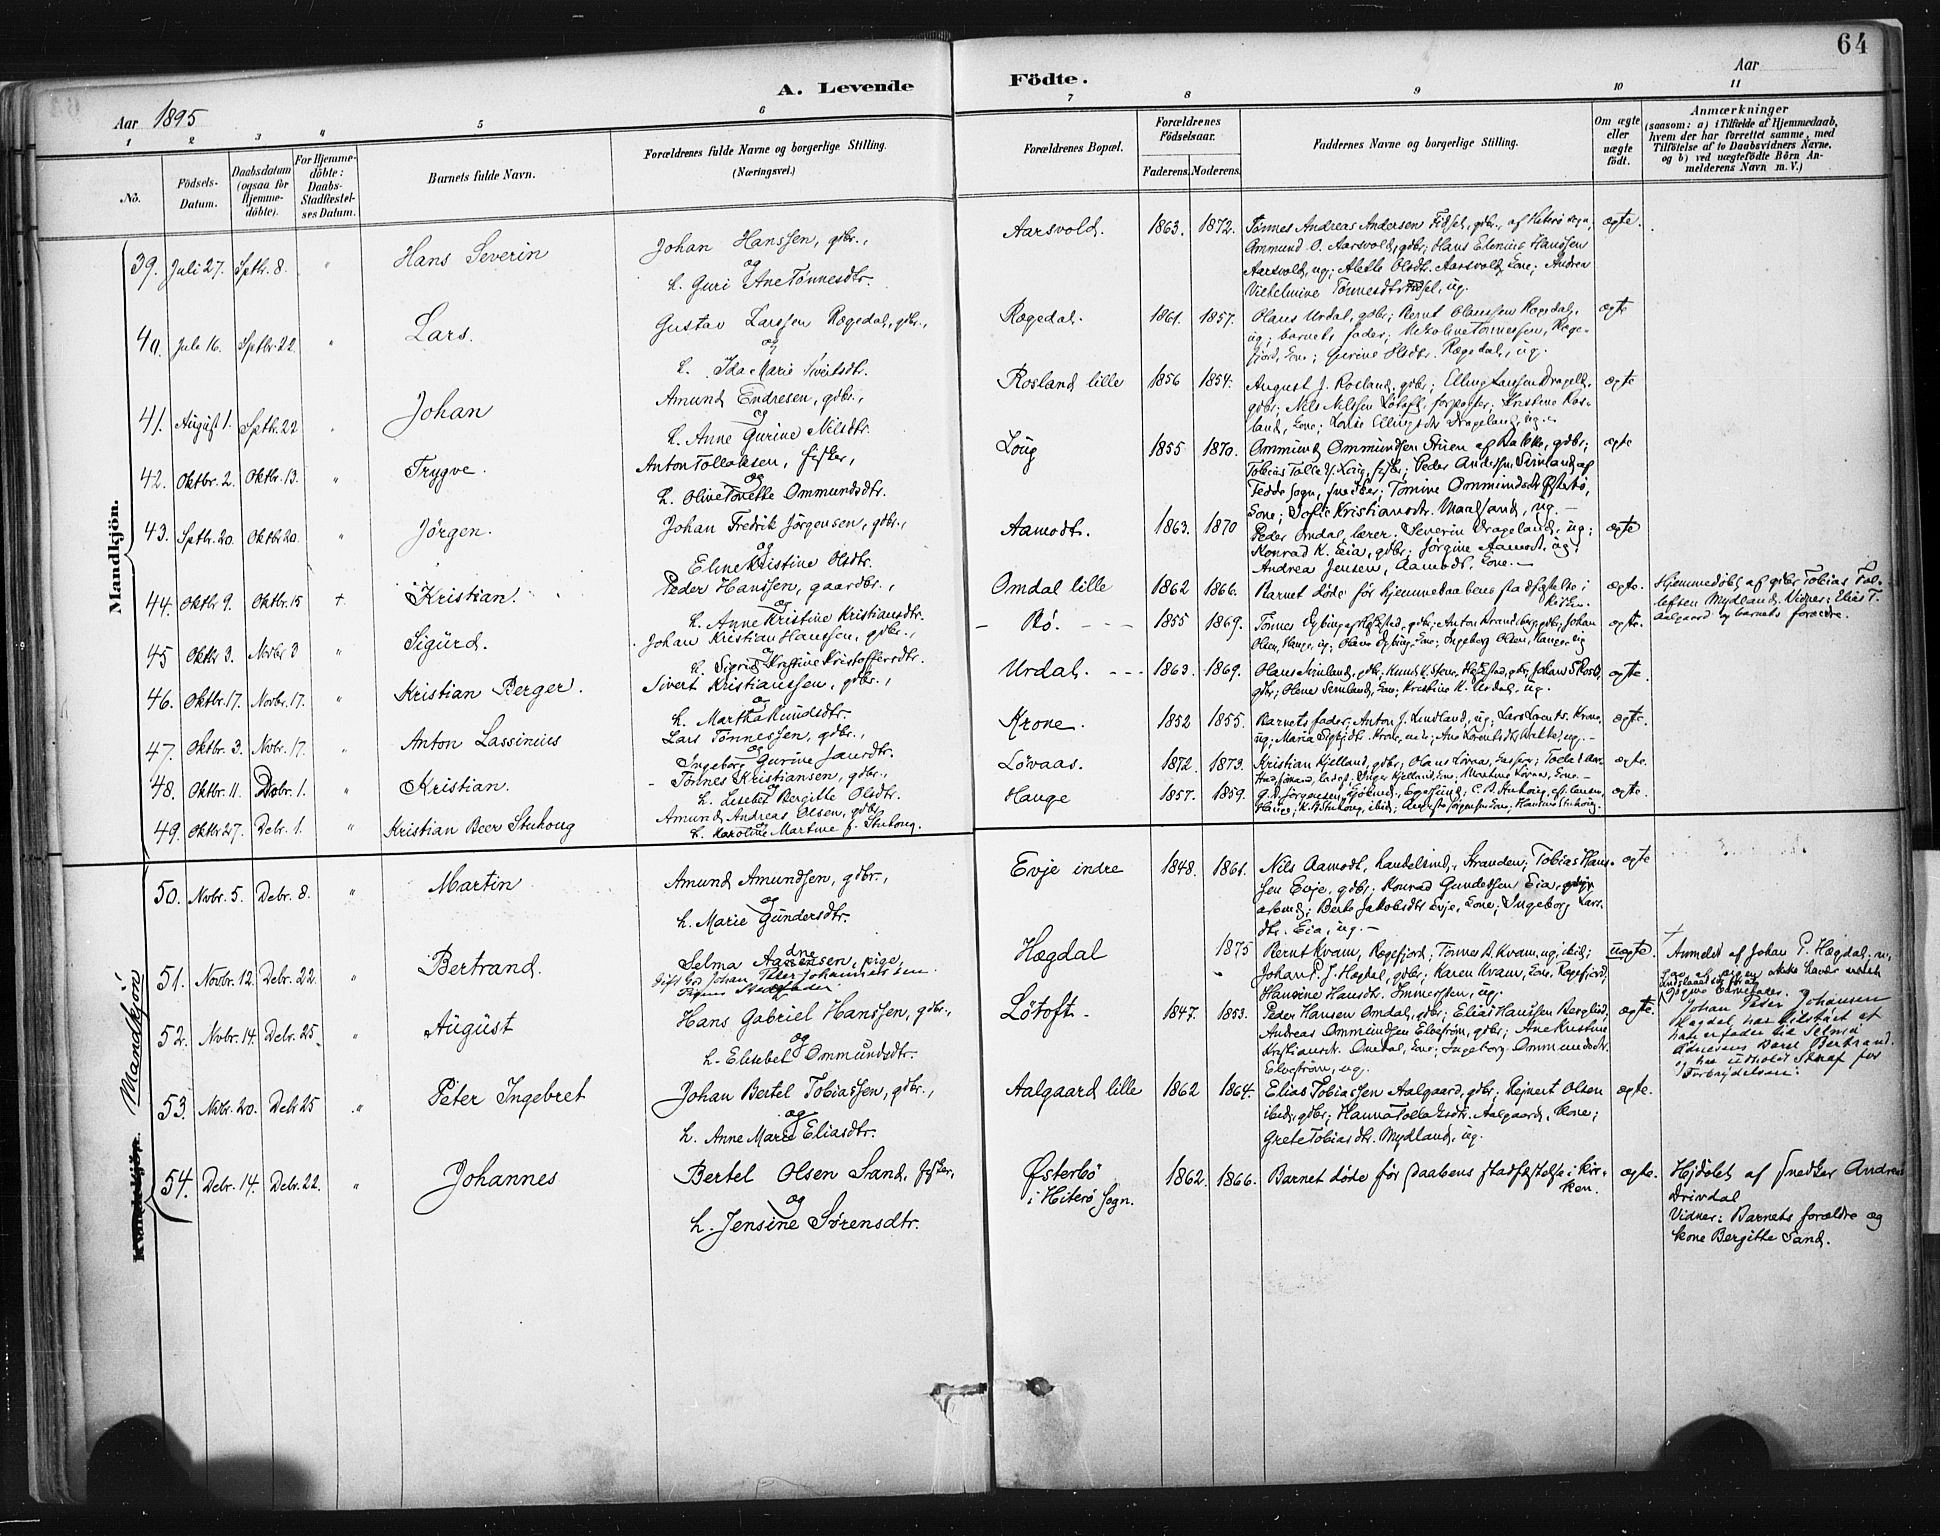 64
A. Levende Födte.
Aar 1895
Aar
1 2 3 4 5 6 7 8 9 10 11
No.
Födsels-Datum.
Daabsdatum (ogsaa for Hjemme-döbte).
For Hjemme-döbte: Daabs-Stadfæstel-ses Datum.
Barnets fulde Navn.
Forældrenes fulde Navne og borgerlige Stilling.
(Næringsvei.)
Forældrenes Bopæl.
Forældrenes Födselsaar.
Faderens. Moderens.
Faddernes Navne og borgerlige Stilling.
Om ægte eller uægte födt.
Anmærkninger
(saasom: a) i Tilfælde af Hjemmedaab,
hvem der har forrettet samme, med
Tilföielse af to Daabsvidners Navne,
og b) ved uægtefödte Börn An-
melderens Navn m. V.)
Mandkjön.
39. Juli 27. Sptb. 8. " Hans Severin
Johan Hanssen, gdbr.,
og
h. Guri Ane Tønnesdtr.
Aarsvold. 1863. 1872.
Tønnes Andreas Andersen Fidsel, gdbr., af Hiterø sogn,
Ommund O. Aarsvold, gdbr; Hans Elenius Hanssen
Aarsvold, ug; Alette Olsdtr. Aarsvold, Kone; Andrea
Vilhelmine Tønnesdtr Fidsel, ug.
ægte.
40. Jule 16. Sptbr. 22. " Lars.
Gustav Larssen Rægedal, gdbr.,
og
h. Ida Marie Sivertsdtr.
Rægedal. 1861. 1857.
Olaus Urdal, gdbr; Bernt Olaussen Rægdal,
ug; barnets fader; Tønnessen, Ræge-
fjord, Kone; Gurine Olsdtr. Rægedal, ug.
ægte
41. August 1. Sptb. 22 " Johan
Amund Endresen, gdbr.,
og
h. Anne Gurine Nilsdtr.
Rosland lille 1856 1854.
August J. Rosland, gdbr; Elling Larssen Drageld,
gdbr; Nils Nilssen Løtoft, ; Kristine Ros-
land, Kone; Ellingsdtr Drageland, ug.
ægte
42. Oktbr. 2. Oktbr. 13. " Trygve.
Anton Tollaksen, fisker,
og
h. Olive Tonette Ommundsdtr.
Løug 1855 1870.
Ommund Ommundsen Stuen af Bakke, gdbr;
Tobias Løug, fisker; Peder Anderssen Sirnland af
Fedde sogn, snedker; Tomine Ommundsdtr Østerbø,
Kone; Sofie Kristiansdtr. Maalsand, ug.
ægte
43. Sptbr. 20. Oktbr 20. " Jørgen.
Johan Fredrik Jørgensen, gdbr.,
og
Eline Kristine Olsdtr.
Aamodt. 1863. 1870
Peder Omdal, lærer. Severin Drageland, ug;
Konrad K. Eia, gdbr; Jørgine Aamodt, ug;
Andrea Jensen, Aamodt, Kone.
ægte
44. Oktbr 9. Oktbr. 15 † Kristian.
Peder Hanssen, gaardbr.,
og
h. Anne Kristine Kristiansdtr.
Omdal lille 1862 1866.
Barnet døde før hjemmedaabens stadfæstelse i
kirken.
ægte.
Hjemmedøbt af gdbr Tobias Tol-
lefsen Mydland. Vidner: Elias T.
Aalgaard og barnets forældre.
45 Oktbr 3. Novbr 3 " Sigurd.
Johan Kristian Hanssen, gdbr.,
og
h. Sigrid Kristine Kristoffersdtr.
Rø. 1855 1869.
Tønnes Nybing af Hitterø, gdbr; Anton Strandberg, gdbr, Johan
Olsen, Hauge, ug; Olava Nybing, Kone; Ingeborg Olsen, Hauge, ug
ægte.
46. Oktbr. 17. Novbr. 17. " Kristian Berger.
Sivert Kristianssen, gdbr.,
og
h. Martha Knudsdtr.
Urdal. 1863. 1869.
Olaus Sirnland, gdbr; Knud K. Stene, Hegstad, gdbr; Johan S. Rosld,
gdbr; Olene Sirnland, Kone; Kristine K. Urdal, ug.
ægte.
47. Oktbr. 3. Novbr. 17. " Anton Lassinius
Lars Tønnessen, gdbr.,
og
Ingeborg Gurine Larsdtr.
Krone. 1852 1855.
Barnets fader, Anton J. Lindland, ug; Lars Lorents. Krone,
ug; Maria Krone, ; Ane Lorentsdtr , ug.
ægte.
48. Oktbr. 11. Debr. 1. " Kristian.
Tønnes Kristiansen, gdbr.,
h. Lisebet Bergitte Olsdtr.
Løvaas. 1872. 1873.
Kristian Kjelland, gdbr; Olaus Løvaas, ; Kjelland, Kone; Martine Løvaas, Kone.
ægte.
49. Oktbr 27. Debr. 1. " Kristian Beer Stuhoug
Amund Andreas Olsen, gdbr.
og
h. Karoline Martine f. Stuhoug.
Hauge 1857. 1859.
G. A. Jørgensen, , Eggesund; C. B. Stuhoug,
Haug; K. B. Stuhoug, ibid; Kone;
ægte.
Mandkjön
Kvindekjön.
50. Novbr. 5. Debr. 8. " Martin
Amund Amundsen, gdbr.,
og
h. Marie Gundersdtr.
Evje indre 1848. 1861.
Nils Aamodt, handelsmd., Stranden; Tobias Hans-
sen Evje, gdbr; Konrad Gundersen Eia,
arbmd; Berte Jakobsdtr Evje, Kone; Ingeborg Lars-
dtr. Eia, ug.
ægte
51. Novbr. 12. Debr. 22. " Bertrand.
Selma Aadnesen, pige,
Gift Gbr Johan Peter Johannessen
Pigens Stedfader
Hægdal 1875
Bernt Kvam, Rægefjord; Tønnes A. Kvam, ug, ibid;
Johan P. J. Hægdal, gdbr; Karen Kvam, Kone, Rægefjord;
Hansine Hansdtr. Immerstein, ug.
uægte.
† Anmeldt af Johan P. Hægdal,
opgive barnefader.
Johan Peter Johansen
Hægdal har tilstaaet at
være fader til Selma
Adnesens Barn Bertrand.
har udholdt Straf for
Forbrydelsen.
52. Novbr. 14. Debr. 25. " August
Hans Gabriel Hanssen, gdbr.,
og
h. Elisebet Ommundsdtr.
Løtoft. 1847. 1853.
Peder Hansen Omdal, gdbr; Elias Hanssen Berglid,
Andreas Ommundsen Elvestrøm, gdbr; Ane Kristine
Kristiansdtr. Omdal, Kone; Ingeborg Ommundsdtr.
Elvestrøm, ug.
ægte.
53. Novbr. 20. Debr 25 " Peter Ingebret
Johan Bertel Tobiassen, gdbr.,
og
h. Anne Marie Eliasdtr.
Aalgaard lille 1862 1864.
Elias Tobiassen Aalgaard, gdbr; Rejnert Olsen
ibid, gdbr; Hanna Tollaksdtr. Aalgaard, Kone;
Grete Tobiasdtr. Mydland, ug.
ægte.
54. Debr. 14. Debr. 22. " Johannes
Bertel Olsen Sand, fisker,
og
h. Jensine Sørensdtr.
Østerbø
i Hiterø Sogn. 1862. 1866.
Barnet døde før Daabens stadfæstelse i kir-
ken.
ægte.
Hjdøbt af Snedker Andreas
Drivdal
Vidner: Barnets forældre og
kone Bergitte Sand.